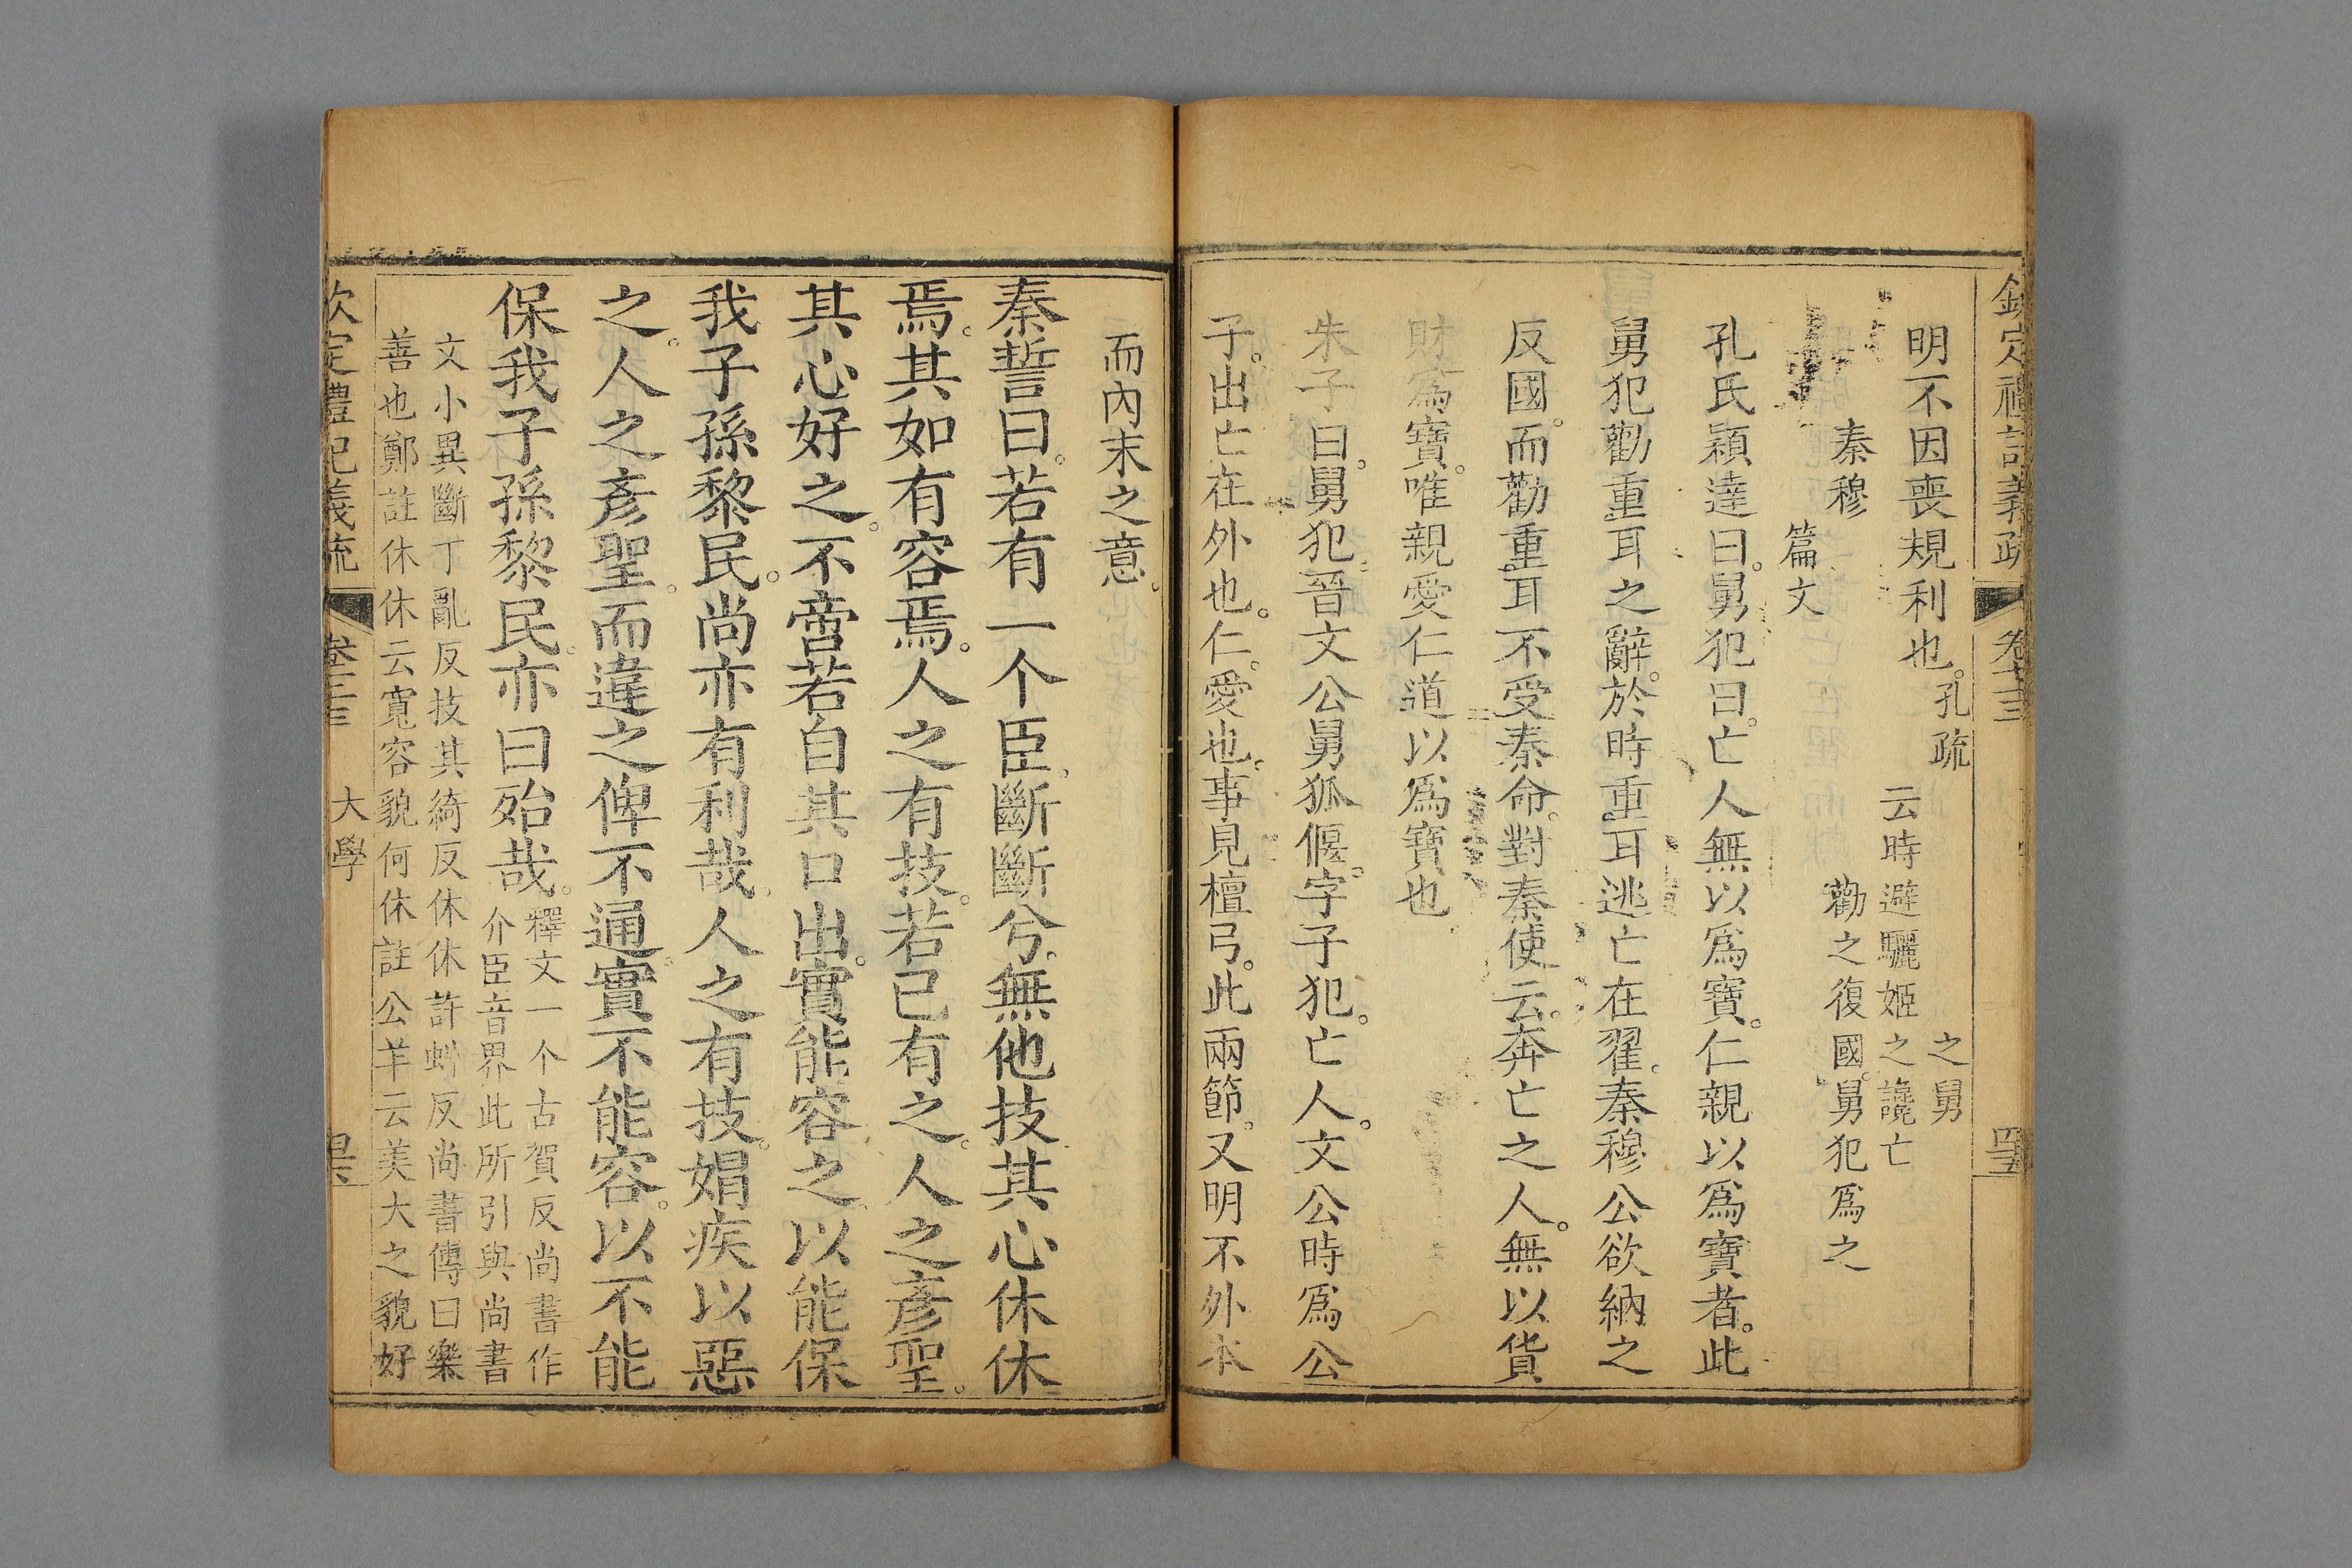 欽定禮記義疏 卷七十三
明不因喪規利也。孔疏
之舅
云時避驪姬之讒亡
秦穆
勸之復國。舅犯為之
篇文
孔氏穎達曰。舅犯曰。亡人無以為寶。仁親以為寶者。此
舅犯勸重耳之辭。於時重耳逃亡在翟。秦穆公欲納之
反國。而勸重耳不受秦命。對秦使云。奔亡之人。無以貨
財為寶。唯親愛仁道以為寶也
朱子曰。舅犯。晉文公舅狐偃。字子犯。亡人。文公時為公
子。出亡在外也。仁。愛也。事見檀弓。此兩節。又明不外本
而內末之意。
秦誓曰。若有一个臣。斷斷兮。無他技。其心休休
焉。其如有容焉。人之有技。若已有之。人之彥聖。
其心好之。不啻若自其口出。實能容之。以能保
我子孫黎民。尚亦有利哉。人之有技。媢疾以惡
之。人之彥聖。而違之俾不通。實不能容。以不能
保我子孫黎民。亦曰殆哉。
釋文一个古賀反尚書作
介臣音界此所引與尚書
文小異斷丁亂反技其綺反休休許虯反尚書傳曰樂
善也鄭註休休云寬容貌何休註公羊云美大之貌好
欽定禮記義疏 大學